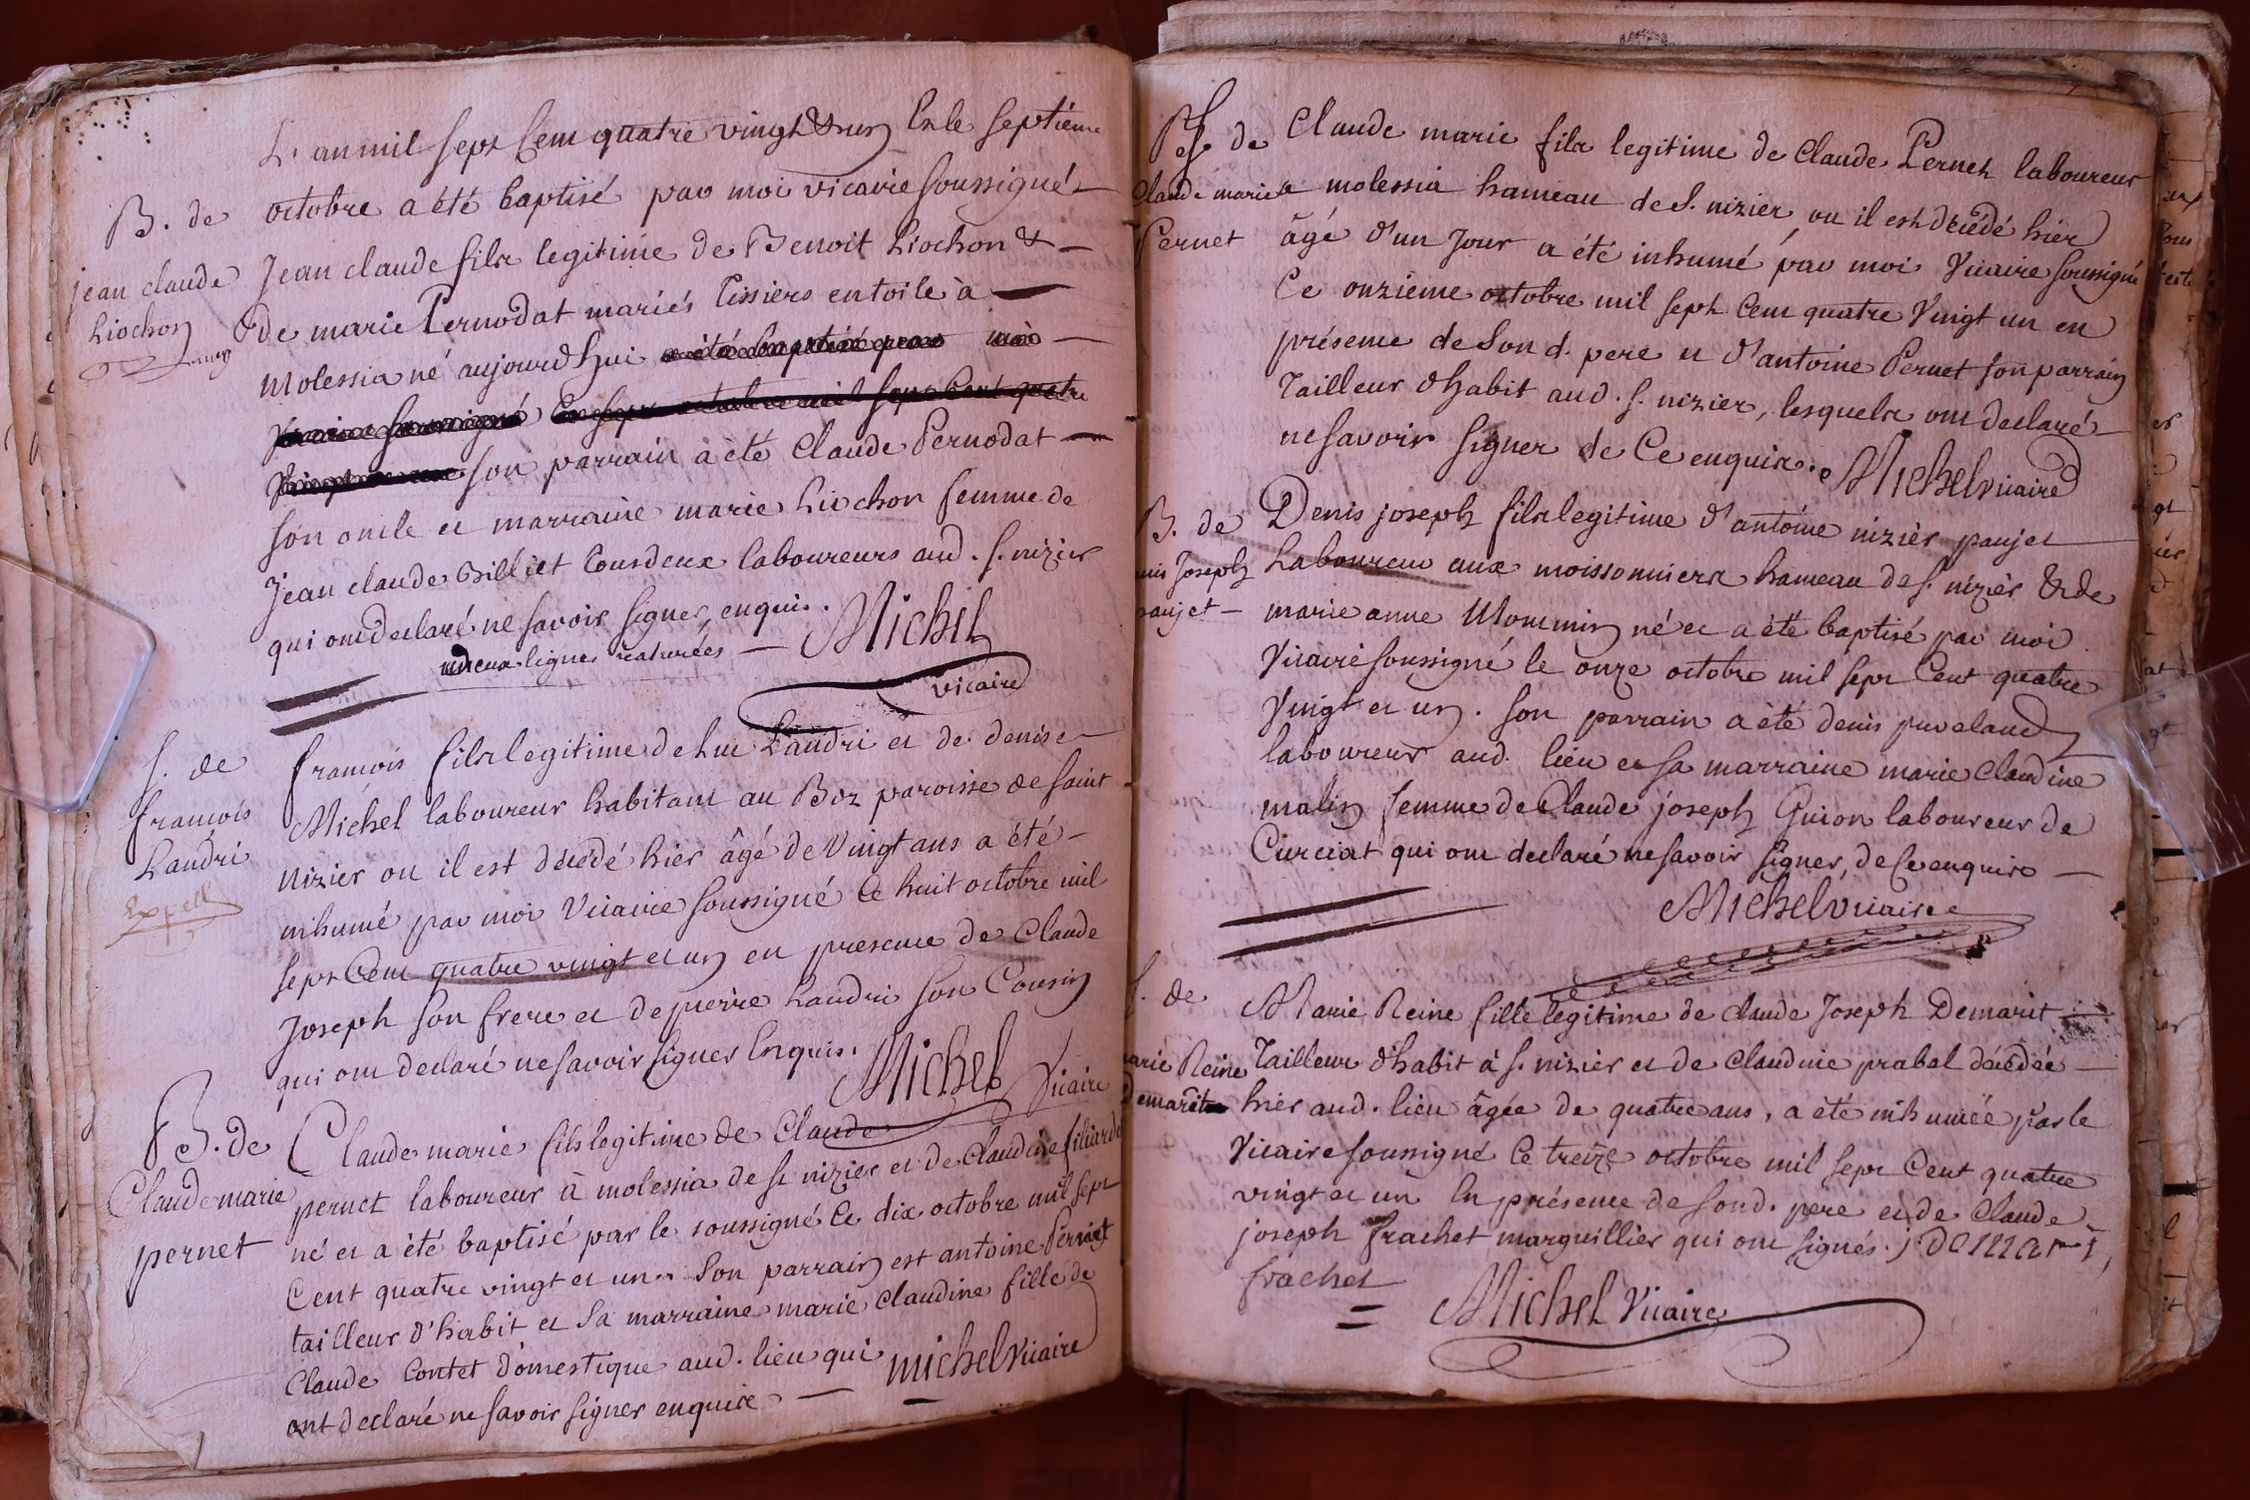 L'an mil sept Cent quatre vingt & un Et le septiéme
B. de
octobre a été baptisé par moi vicaire soussigné
jean claude
Liochon
Jean claude fils legitime de Benoit Liochon &
de marie Pernodat mariés Tissiers en toile à
Molessia né aujourd'hui a été baptisé par moi
vicaire soussigné ce sept octobre mil sept Cent quatre
vingt un son parrain a été Claude Pernodat
son oncle et marraine marie Liochon femme de
Jean claude Billiet tous deux laboureurs aud. s. nizier
qui ont declaré ne savoir signer, enquis.
deux lignes raturées
Michel
vicaire
S. de
françois
Landri
Expell
françois fils legitime de Luc Landri et de denise
Michel laboureur habitant au Boz paroisse de saint
Nizier ou il est décédé hier âgé de vingt ans a été
inhumé par moi vicaire soussigné ce huit octobre mil
sept Cent quatre vingt et un en presence de Claude
Joseph son frere et de pierre Landri son Cousin
qui ont declaré ne savoir signer Enquis.
Michel Vicaire
B. de
Claude marie
pernet
Claude marie fils legitime de Claude
pernet laboureur à molessia de st nizier et de Claudine filiarde
né et a été baptisé par le soussigné ce dix octobre mil sept
Cent quatre vingt et un. Son parrain est antoine Pernet
tailleur d'habit et Sa marraine marie Claudine fille de
Claude Contet domestique aud. lieu qui
ont declaré ne savoir signer enquise
michel Vicaire
S. de
Claude marie
Pernet
Claude marie fils legitime de Claude Pernet laboureur
a molessia hameau de S. nizier, ou il est décédé hier
âgé d'un Jour a été inhumé par moi Vicaire soussigné
Ce onzieme octobre mil sept Cent quatre Vingt un en
présence de Son d. pere et d'antoine Pernet son parrain
Tailleur d'habit aud. s. nizier, lesquels ont declaré
ne savoir signer de Ce enquis.
Michel vicaire
B. de
nis Joseph
paujet
Denis joseph fils legitime d'antoine nizier paujet
Laboureur aux moissonniers hameau de s. nizier & de
marie anne Mommin né et a été baptisé par moi
Vicaire soussigné le onze octobre mil sept Cent quatre
Vingt et un. Son parrain a été denis puveland
laboureur aud. lieu et sa marraine marie Claudine
malin femme de Claude joseph Guion laboureur de
Curciat qui ont declaré ne savoir signer, de Ce enquis
Michel vicaire
S. de
arie Reine
Demaret
Marie Reine fille legitime de claude Joseph Demaret
Tailleur d'habit à s. nizier et de Claudine prabel décédée
hier aud. lieu âgée de quatre ans, a été inhumée par le
Vicaire soussigné Ce treize octobre mil sept Cent quatre
vingt et un En présence de son d. pere et de Claude
joseph frachet marguillier qui ont signés.
frachet
Michel Vicaire